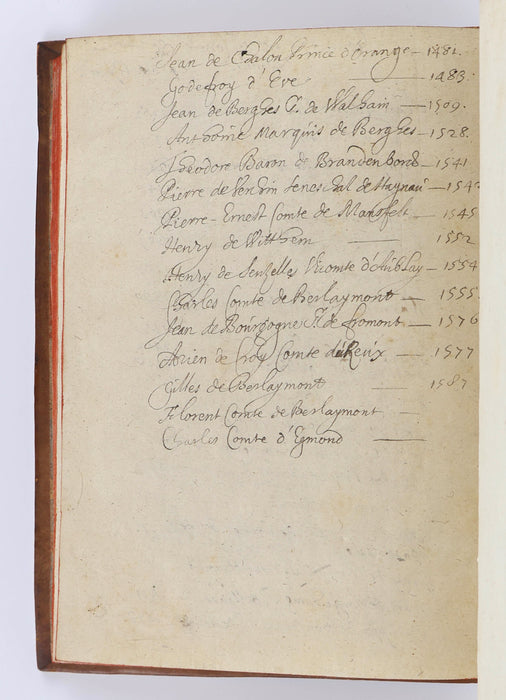 Jean de Chalon Prince d'Orange — 1481.
Godefroy d'Eve — 1483.
Jean de Berghes S. de Walhain — 1509.
Anthoine Marquis de Berghes — 1528.
Theodore Baron de Brandenbord — 1541
Pierre de Venchin senescal de Haynau — 154
Pierre-Ernest Comte de Mansfelt — 1545
Henry de Witthem — 1552
Henry de Senzelle Vicomte d'Aublay — 1554
Charles Comte de Berlaymont — 1555.
Jean de Bourgogne S. de fromont — 1576
Adrien de Croy Comte du Reux — 1577
Gilles de Berlaymont — 1587
Florent Comte de Berlaymont —
Charles Comte d'Egmond —